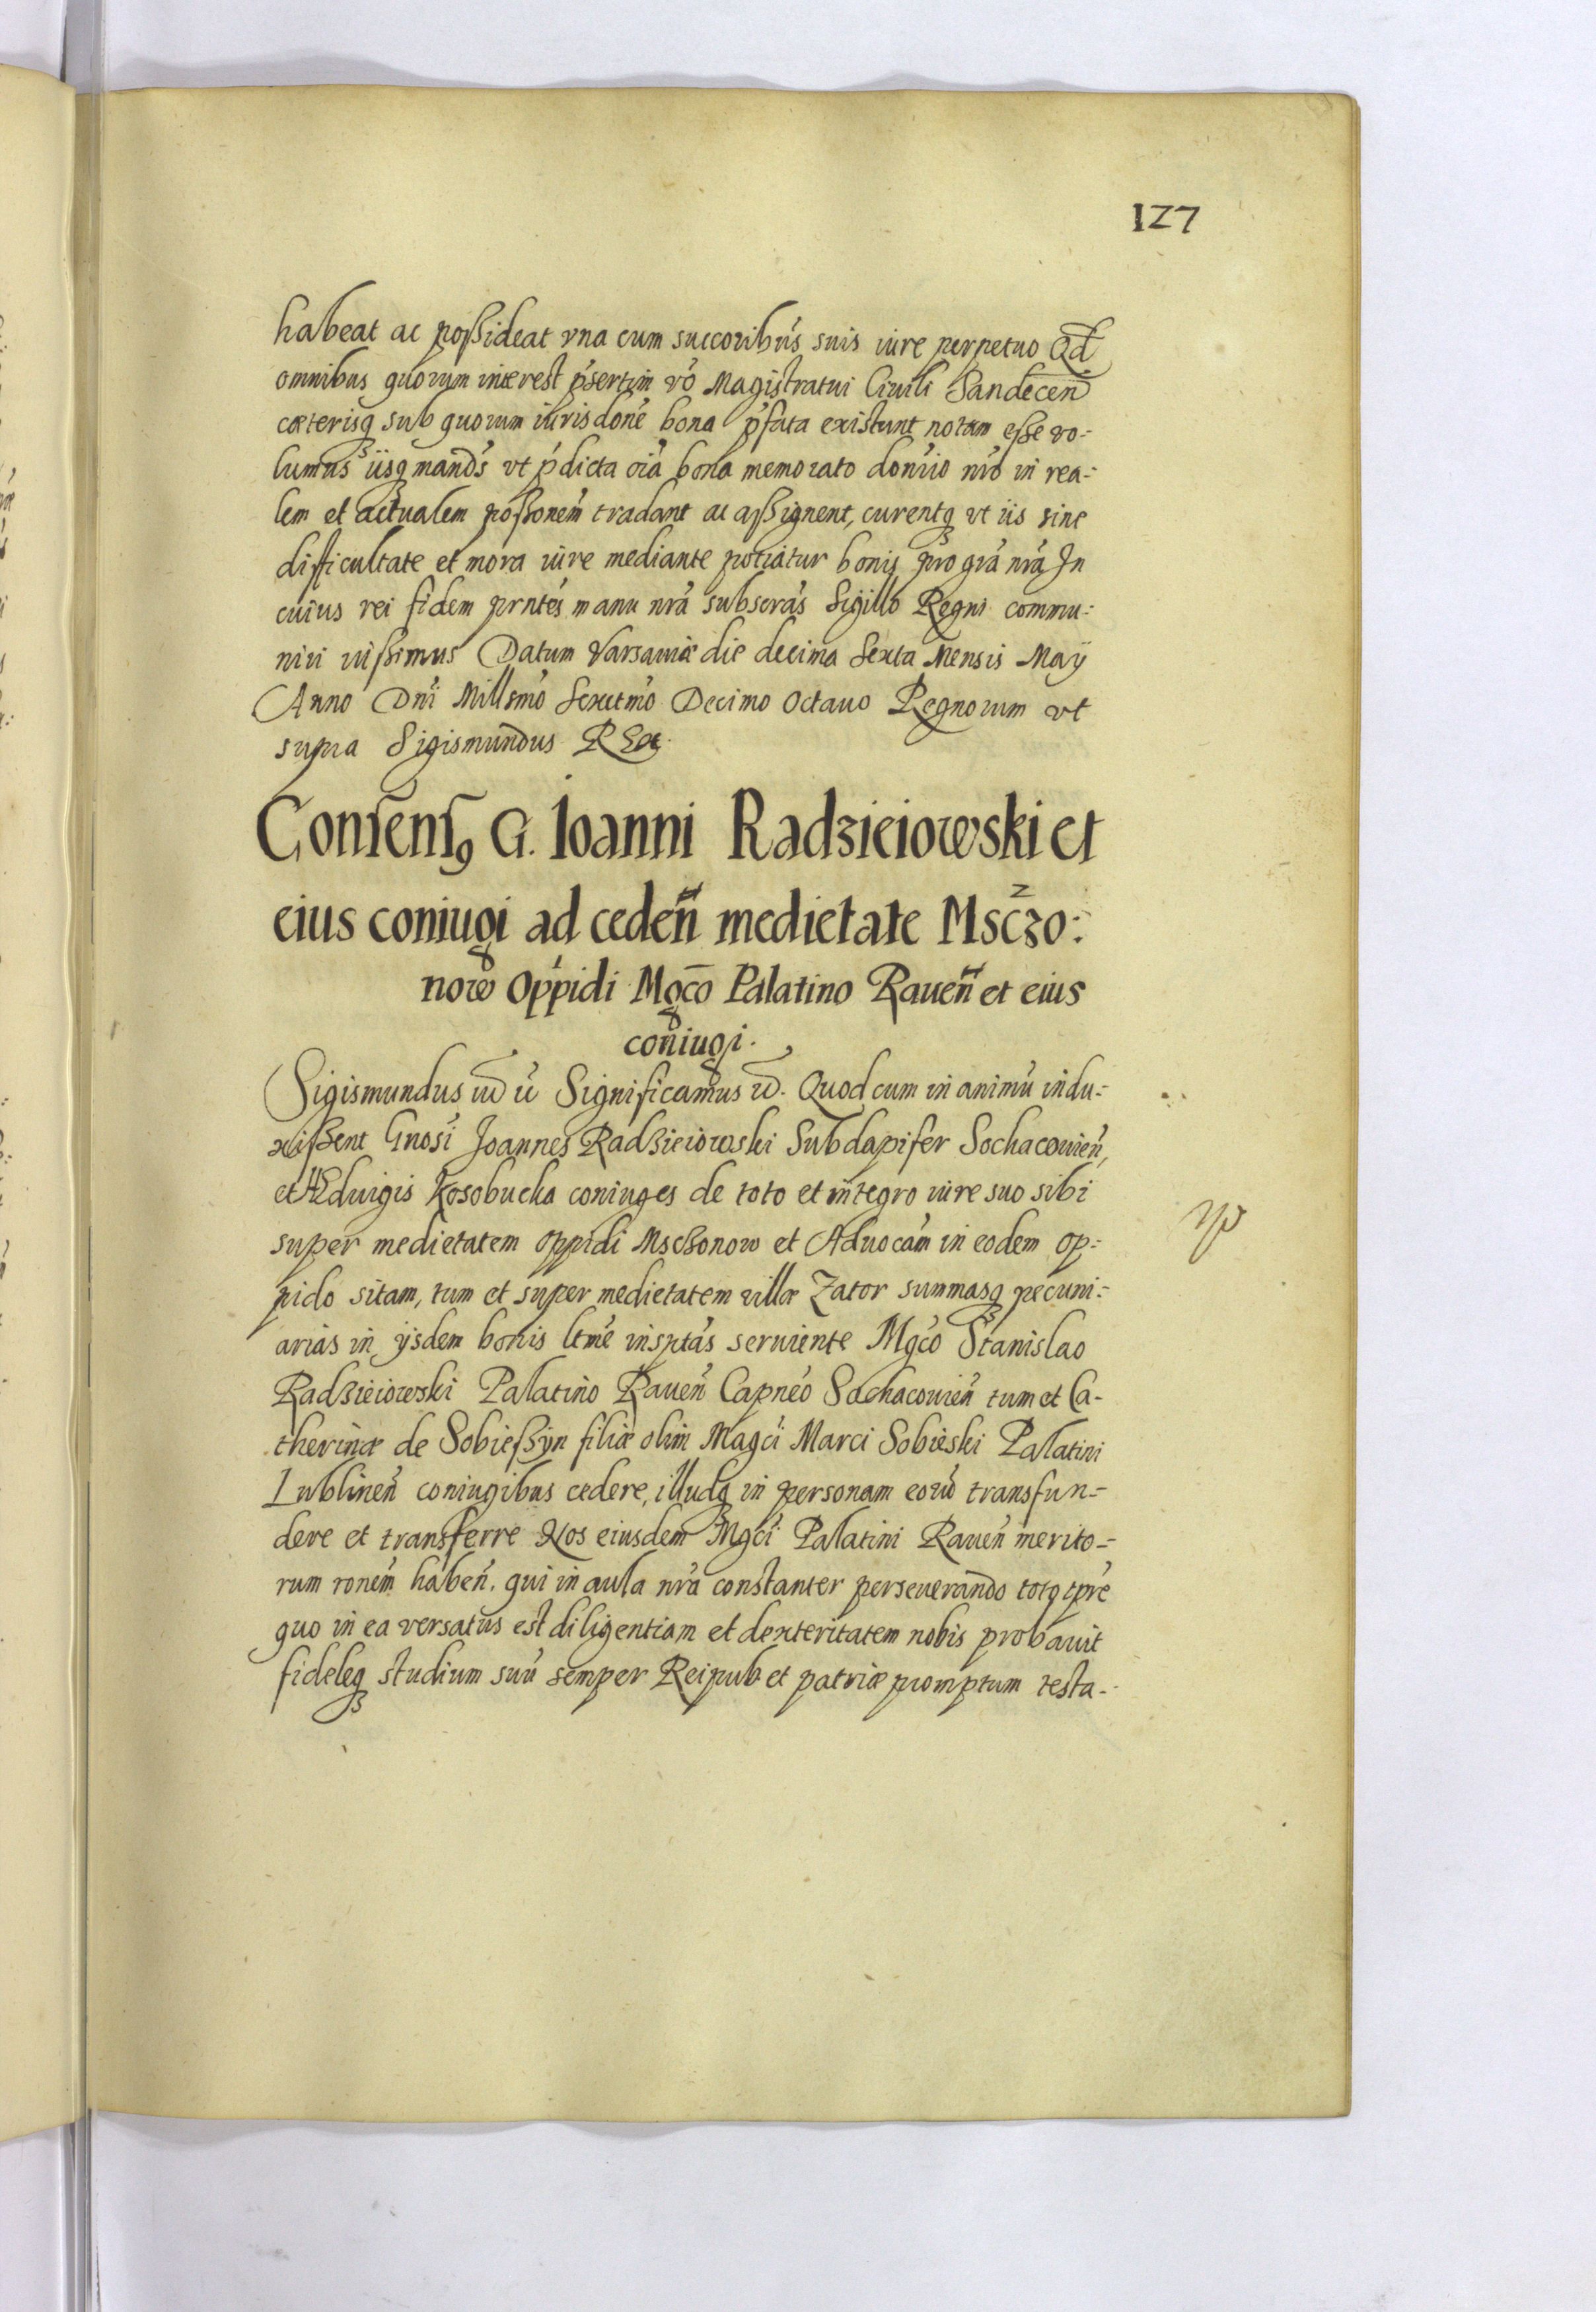 127
habeat ac poßideat vna cum succoribus suis iure perpetuo Qd
omnibus quorum interest pſertim vo Magistratui Ciuili Sandecen
cæterisq sub quorum iurisdone bona pfata existunt notum eße vo=
lumus iisq mands vt pdicta oia bona memorato donrio nro in rea=
lem et actualem poßonem tradant ac aßignent, curentq vt iis sine
difficultate et mora iure mediante potiatur bonis pro gra nra In
cuius rei fidem prntes manu nra subscras Sigillo Regni commu=
niri iußimus Datum Varsauiæ die decima Sexta Mensis Maÿ
Anno Dni Millsmo Sexctmo Decimo Octauo Regnorum vt
supra Sigismundus Rex
Consens9 G. Ioanni Radzieiowski et
eius coniugi ad ceden medietate Msczo:
now Oppidi Mgco Palatino Rauen et eius
coniugi.
Sigismundus Significamus Quod cum in animu indu=
xißent Gnosi Joannes Radzieiowski Subdapifer Sochacouien,
et Heduigis Kosobucka coniuges de toto et integro iure suo sibi
super medietatem oppidi Msczonow et Aduocam in eodem op=
pido sitam, tum et super medietatem villæ Zator summasq pecuni=
arias in ijsdem bonis ltme insptas seruiente Mgco Stanislao
Radzieiowski Palatino Rauen Capneo Sochacouien tum et Ca-
therinæ de Sobießyn filiæ olim Magci Marci Sobieski Palatini
Lublinen coniugibus cedere, illudq in personam eoru transfun=
dere et transferre Nos eiusdem Mgci Palatini Rauen merito=
rum ronem haben. qui in aula nra constanter perseuerando totq tpre
quo in ea versatus est diligentiam et dexteritatem nobis probauit
fideleq studium suu semper Reipub et patriæ promptum testa-